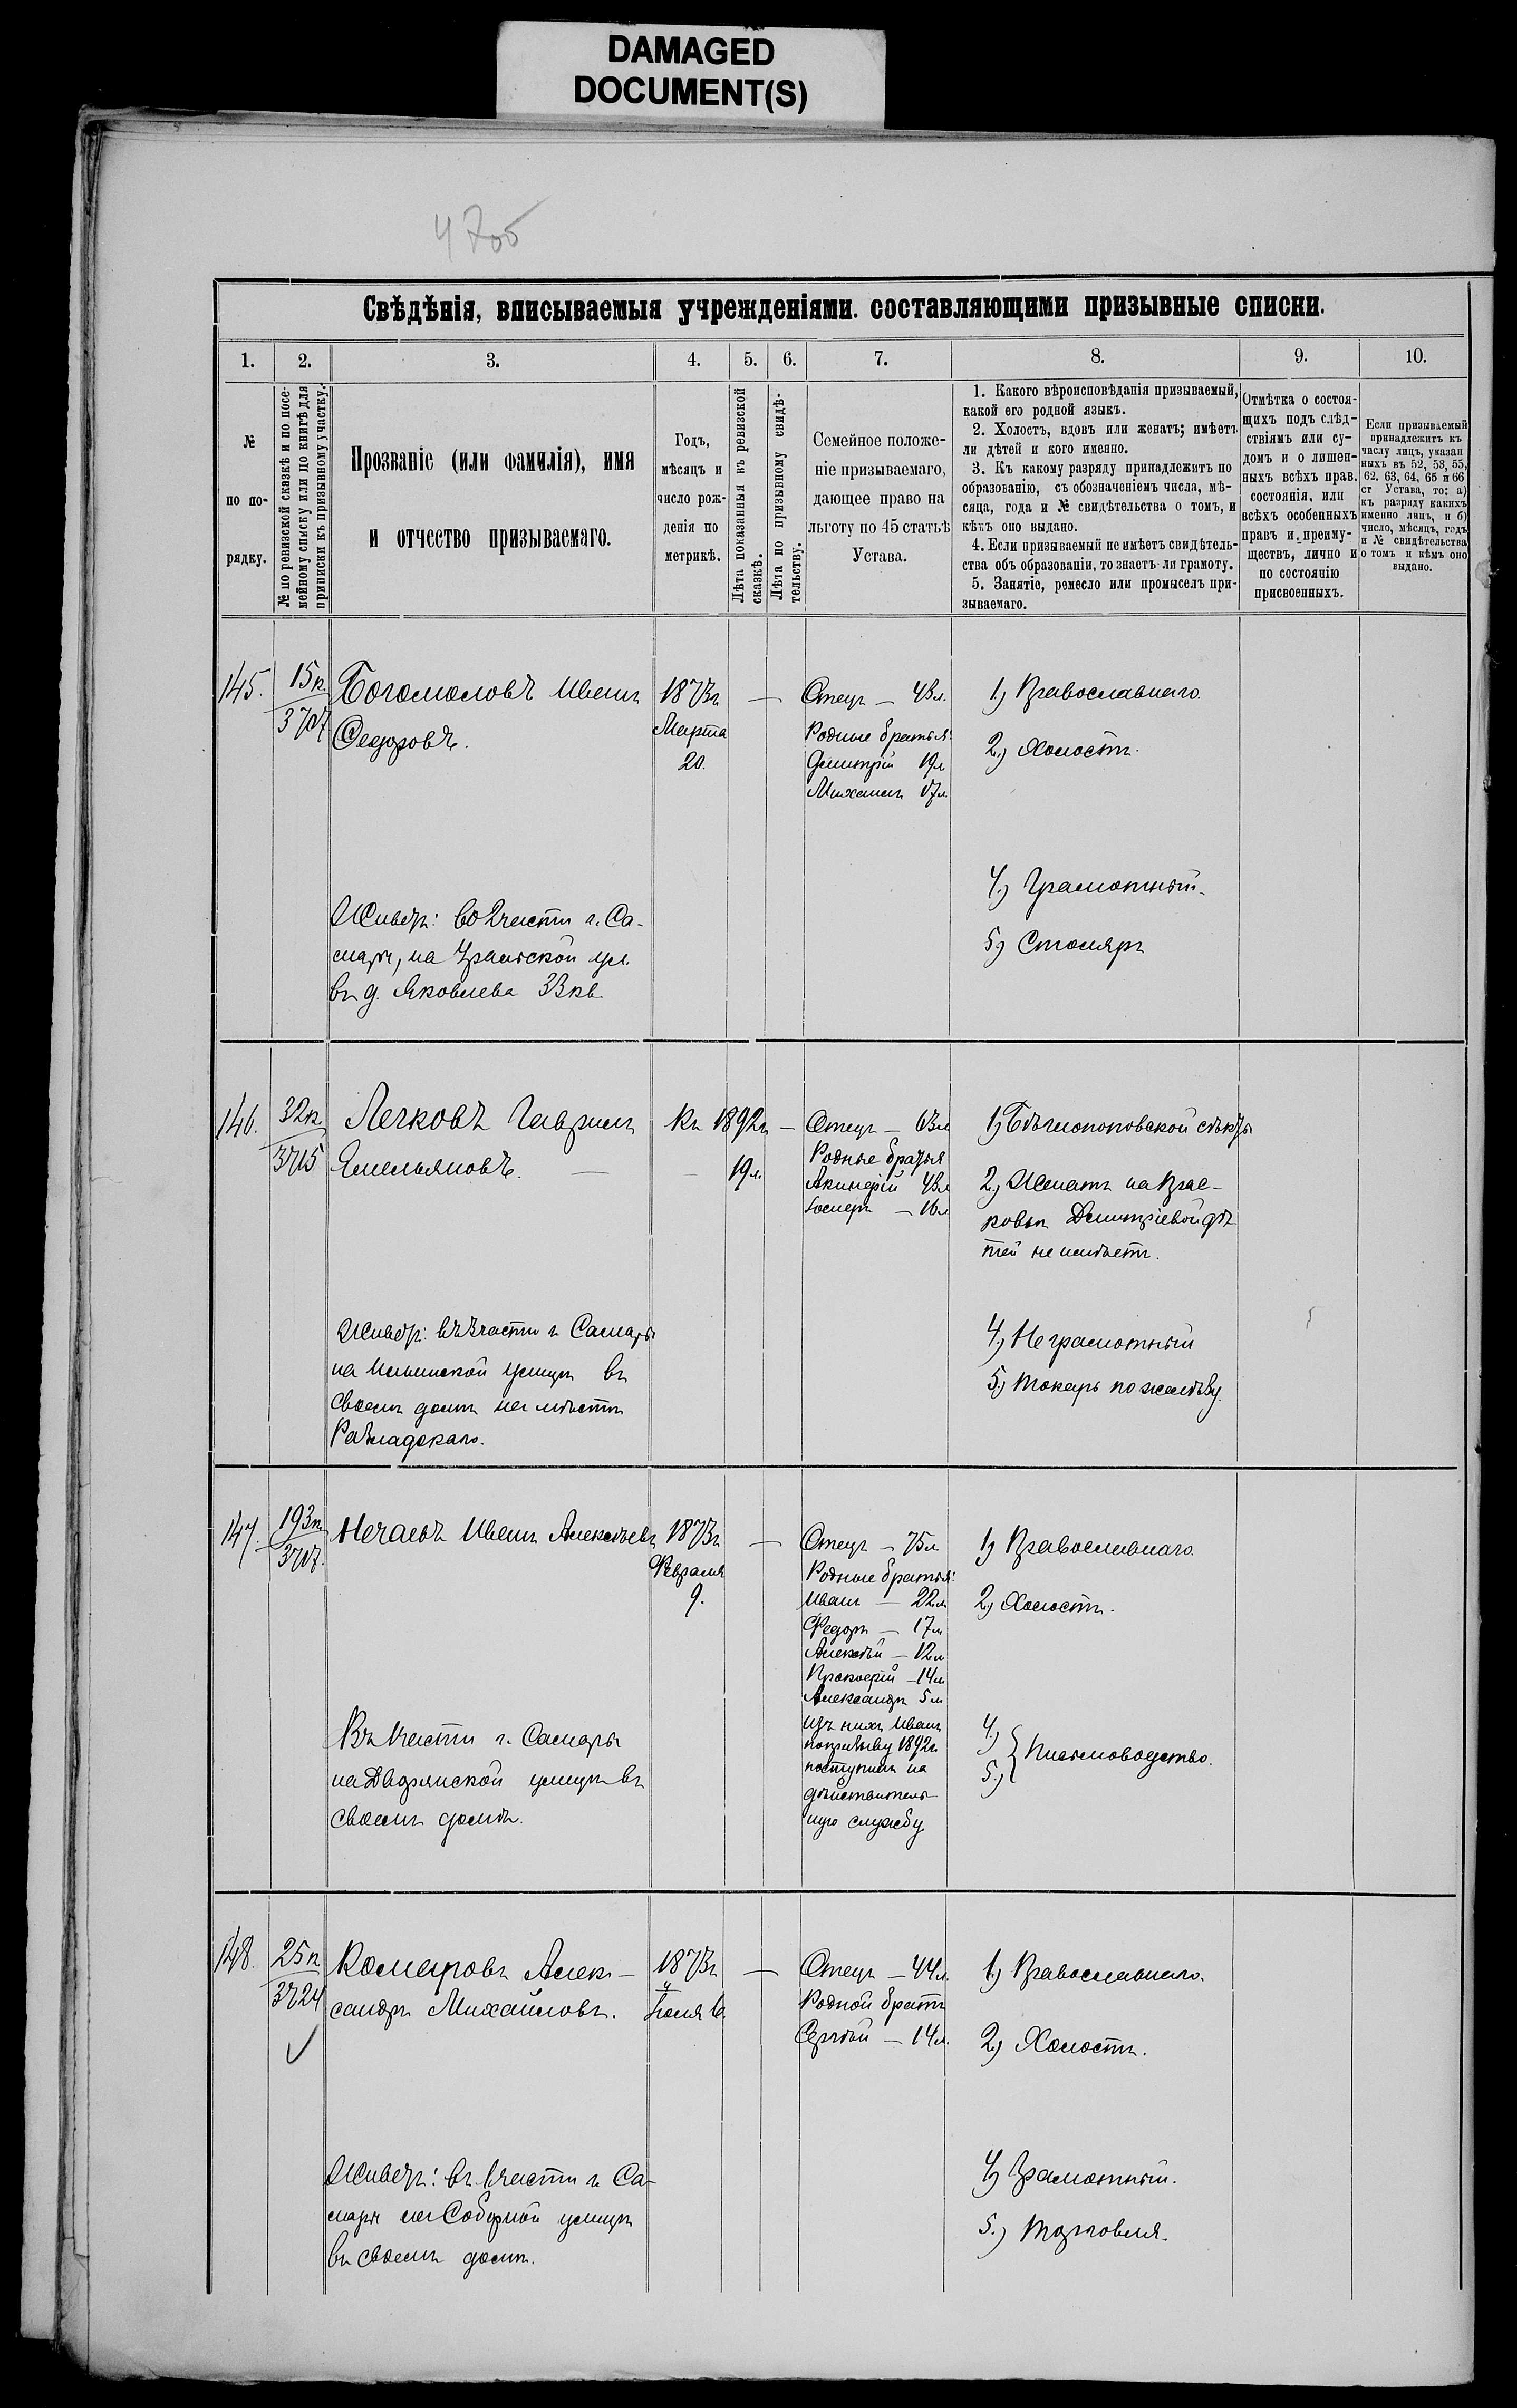 DAMAGED
DOCUMENT(S)
Свѣдѣнія, вписываемыя учрежденіями. составляющими призывные списки.
1. 2. 3. 4. 5. 6. 7. 8. 9. 10.
№
по по-
рядку.
№ по ревизской сказкѣ и по посе-
мейному списку или по книгѣ для
приписки къ призывному участку.
Прозваніе (или фамилія), имя
и отчество призываемаго.
Годъ,
мѣсяцъ и
число рож-
денія по
метрикѣ.
Лѣта показанныя въ ревизской
сказкѣ.
Лѣта по призывному свидѣ-
тельству.
Семейное положе-
ніе призываемаго,
дающее право на
льготу по 45 статьѣ
Устава.
1. Какого вѣроисповѣданія призываемый,
какой его родной языкъ.
2. Холостъ, вдовъ или женатъ; имѣетъ
ли дѣтей и кого именно.
3. Къ какому разряду принадлежитъ по
образованію, съ обозначеніемъ числа, мѣ-
сяца, года и № свидѣтельства о томъ, и
кѣмъ оно выдано.
4. Если призываемый не имѣетъ свидѣтель-
ства объ образованіи, то знаетъ-ли грамоту.
5. Занятіе, ремесло или промыселъ при-
зываемаго.
Отмѣтка о состоя-
щихъ подъ слѣд-
ствіямъ или су-
домъ и о лишен-
ныхъ всѣхъ прав.
состоянія, или
всѣхъ особенныхъ
правъ и преиму-
ществъ, лично и
по состоянію
присвоенныхъ.
Если призываемый
принадлежитъ къ
числу лицъ, указан
ныхъ въ 52, 53, 55,
62. 63, 64, 65 и 66
ст Устава, то: а)
къ разряду какихъ
именно лицъ, и б)
число, мѣсяцъ, годъ
и № свидѣтельства
о томъ и кѣмъ оно
выдано.
145.
15п.
3707
Богомоловъ Иванъ
Федоровъ.
Живетъ: во 2 части г. Са-
мары, на Уральской ул.
въ д. Яковлева 33 кв
1873г
Марта
20.
—
Отецъ — 43л.
Родные братья:
Димитрій 19л
Михаилъ 17л.
1) Православнаго.
2) Холостъ.
4) Грамотный.
5) Столяръ
146.
32п
3715
Лечковъ Гавриилъ
Емельяновъ. —
Живетъ: въ 3 части г. Самары
на Ильинской улицѣ въ
своемъ домѣ на мѣстѣ
Къ 1892г —
19л.
Отецъ — 63л
Родные братья
48л
— 16л
1) Бѣглопоповской секты
2) Женатъ на Прас-
ковьѣ Димитріевой дѣ
тей не имѣетъ.
4) Неграмотный
5) Токарь по желѣзу.
147.
193п
3717.
Нечаевъ Иванъ Алексѣевъ
Въ 1 части г. Самары
на Дворянской улицѣ въ
своемъ домѣ.
1873г
Февраля
9.
—
Отецъ — 75л
Родные братья:
Иванъ — 22л
Федоръ — 17л
Алексѣй — 12л
Прокофій — 14л
Александръ 5л
изъ нихъ Иванъ
по призыву 1892г
поступилъ на
дѣйствитель
ную службу
1) Православнаго.
2) Холостъ.
4)
5) Письмоводство.
148.
25п
3724
Комаровъ Алек-
сандръ Михайловъ.
Живетъ: въ 1 части г. Са-
мары на Соборной улицѣ
въ своемъ домѣ.
1873г
—
Отецъ — 44л.
Родной братъ
Сергѣй — 14л.
1) Православнаго.
2) Холостъ.
4) Грамотный.
5.) Торговля.